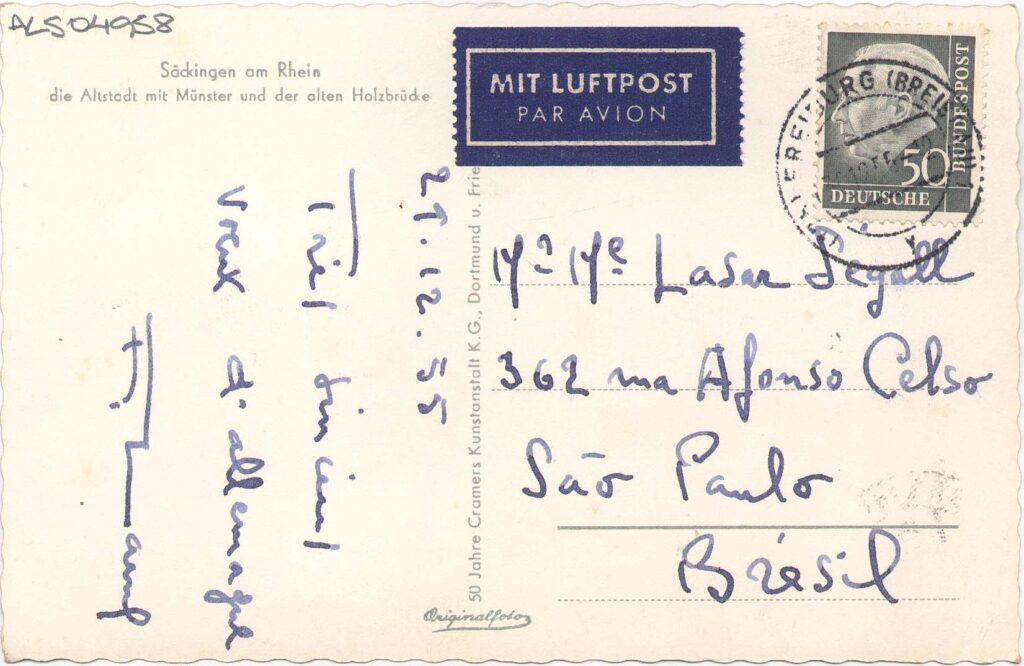 ALS04958
Säckingen am Rhein
die Altstadt mit Münster und der alten Holzbrücke
MIT LUFTPOST
PAR AVION
50
DEUTSCHE
BUNDESPOST
FREIBURG (BREI
50 Jahre Cramers Kunstanstalt K.G., Dortmund u. Frie
Originalfoto
27.12.55
Très
Voeux d'allemagne
Mr Me Lasar Segall
362 rua Afonso Celso
São Paulo
Brésil